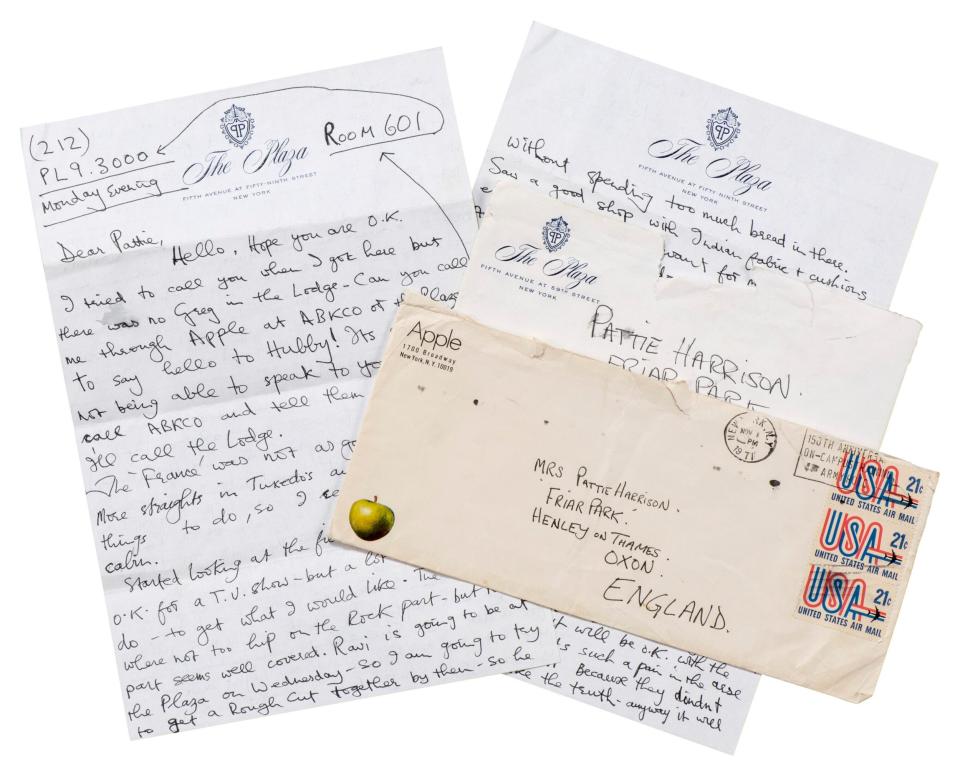 (212)
PL9.3000
Monday Evening
PP
The Plaza
FIFTH AVENUE AT FIFTY-NINTH STREET
NEW YORK
ROOM 601
Dear Pattie,
Hello, Hope you are O.K.
I tried to call you when I got here but
there was no Greg in the Lodge - Can you call
me through Apple at ABKCO or the Plaza
to say hello to Hubby! Its
not being able to speak to yo
call ABKCO and tell them
I'll call the Lodge.
The 'France' was not as go
More straights in Tuxedo's an
things to do, so I
cabin.
Started looking at the
O.K. for a T.V. show - but a lot
do - to get what I would like. The
where not too hip on the Rock part - but
part seems well covered. Ravi is going to be at
the Plaza on Wednesday - So I am going to try
to get a Rough Cut together by then - so he
PP
The Plaza
FIFTH AVENUE AT FIFTY-NINTH STREET
NEW YORK
without spending too much bread in there.
Saw a good shop with Indian fabric + cushions
want for
it will be O.K. with the
is such a pain in the arse
Because they dindnt
the truth - anyway it will
PP
The Plaza
FIFTH AVENUE AT 59TH STREET
NEW YORK
PATTIE HARRISON.
FRIAR PARK
Apple
1700 Broadway
New York, N.Y. 10019
MRS PATTIE HARRISON.
FRIAR PARK.
HENLEY ON THAMES.
OXON.
ENGLAND.
NEW YORK, N.Y.
NOV 1
PM
1971
150TH ANNIVERSA
ON-CAMP
ARM
USA 21c
UNITED STATES AIR MAIL
USA 21c
UNITED STATES AIR MAIL
USA 21c
UNITED STATES AIR MAIL